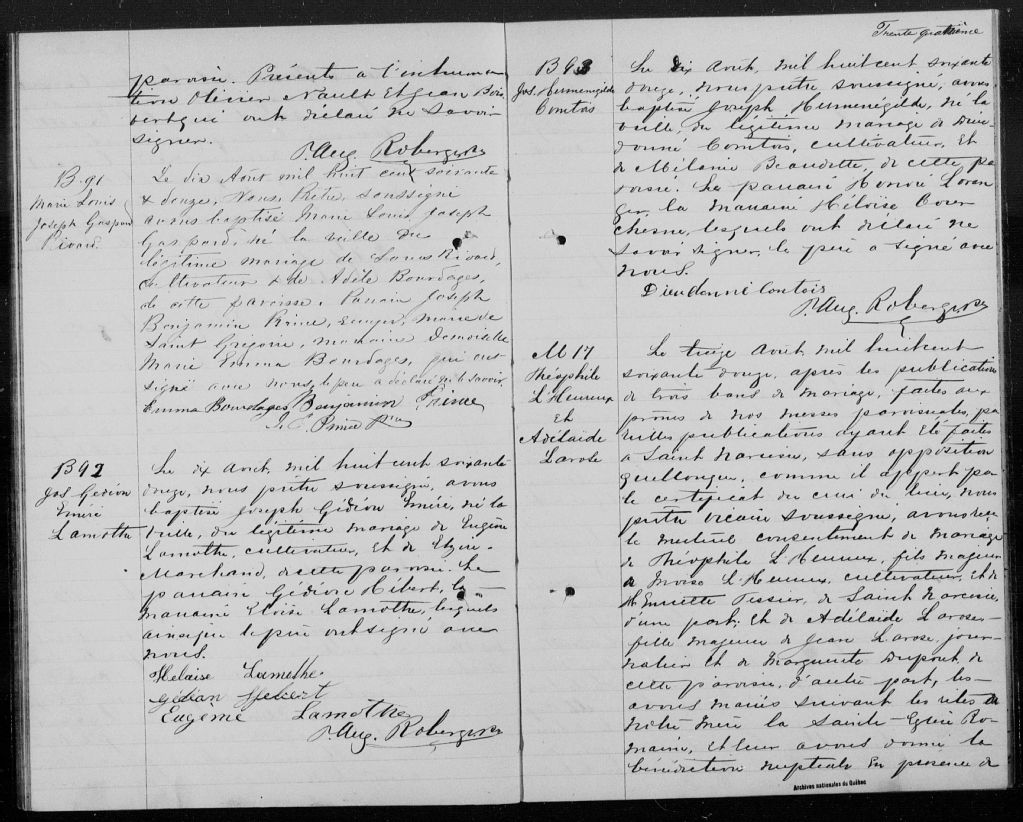 paroisse. Présents à l'inhuma
tion Olivier Nault Et Jean Bois
vert qui ont déclaré ne savoir
signer.
P. Aug. Roberge Ptre
B. 91
Marie Louis
Joseph Gaspard
Rivard
Le dix Aout mil huit cent soixante
& douze, Nous, Prêtre, soussigné
avons baptisé Marie Louis Joseph
Gaspard, né la veille du
légitime mariage de Louis Rivard,
Cultivateur & de Adèle Bourdages,
de cette paroisse. Parrain Joseph
Benjamin Prince, Ecuyer, Maire de
Saint Grégoire, marraine Demoiselle
Marie Emma Bourdages, qui ont
signé avec nous, le père a déclaré ne le savoir
Emma Bourdages Benjamin Prince
J. C. Prince Ptre
B 92
Jos. Gédéon
Eméré
Lamothe
Le dix Aout, mil huit cent soixante
douze, nous prêtre soussigné, avons
baptisé Joseph Gédéon Eméré, né la
veille, du légitime mariage de Eugène
Lamothe, cultivateur, Et de Elzire
Marchand, de cette paroisse. Le
parrain Gédéon Hébert, la
marraine Eloïse Lamothe, lesquels
ainsi que le père ont signé avec
nous.
Helaise Lamothe
Gédéan Hebert
Eugène Lamothe
P. Aug. Roberge Ptre
Trente quatrième
B 93
Jos. Hermenegilde
Comtois
Le dix Aout, mil huit cent soixante
douze, nous prêtre soussigné, avons
baptisé Joseph Hermenégilde, né la
veille, du légitime mariage de Dieu-
donné Comtois, cultivateur, Et
de Mélanie Beaudette, de cette pa
roisse. Le parrain Honoré Loran
ger, la marraine Héloïse Cour
chesne, lesquels ont déclaré ne
savoir signer, le père a signé avec
nous.
Dieudonné Contois
P. Aug. Roberge Ptre
M 17
Théophile
L'Heureux
Et
Adélaïde
Larose
Le treize Aout, mil huit cent
soixante douze, après les publications
de trois bans de mariage, faites aux
prônes de nos messes paroissiales, pa
reilles publications ayant été faites
à Saint Narcisse, sans opposition
quelconque, comme il appert par
le certificat du curé du lieu, nous
prêtre vicaire soussigné, avons reçu
le mutuel consentement de mariage
de Théophile L'Heureux, fils majeur
de Moïse L'Heureux, cultivateur, Et de
Henriette Tessier, de Saint Narcisse,
d'une part; Et de Adélaïde Larose
fille majeure de Jean Larose, jour-
nalier Et de Marguerite Dupont, de
cette paroisse, d'autre part, les
avons mariés suivant les rites de
notre mère la Sainte-Eglise Ro-
maine, Et leur avons donné la
bénédiction nuptiale En présence de
Archives nationales du Québec